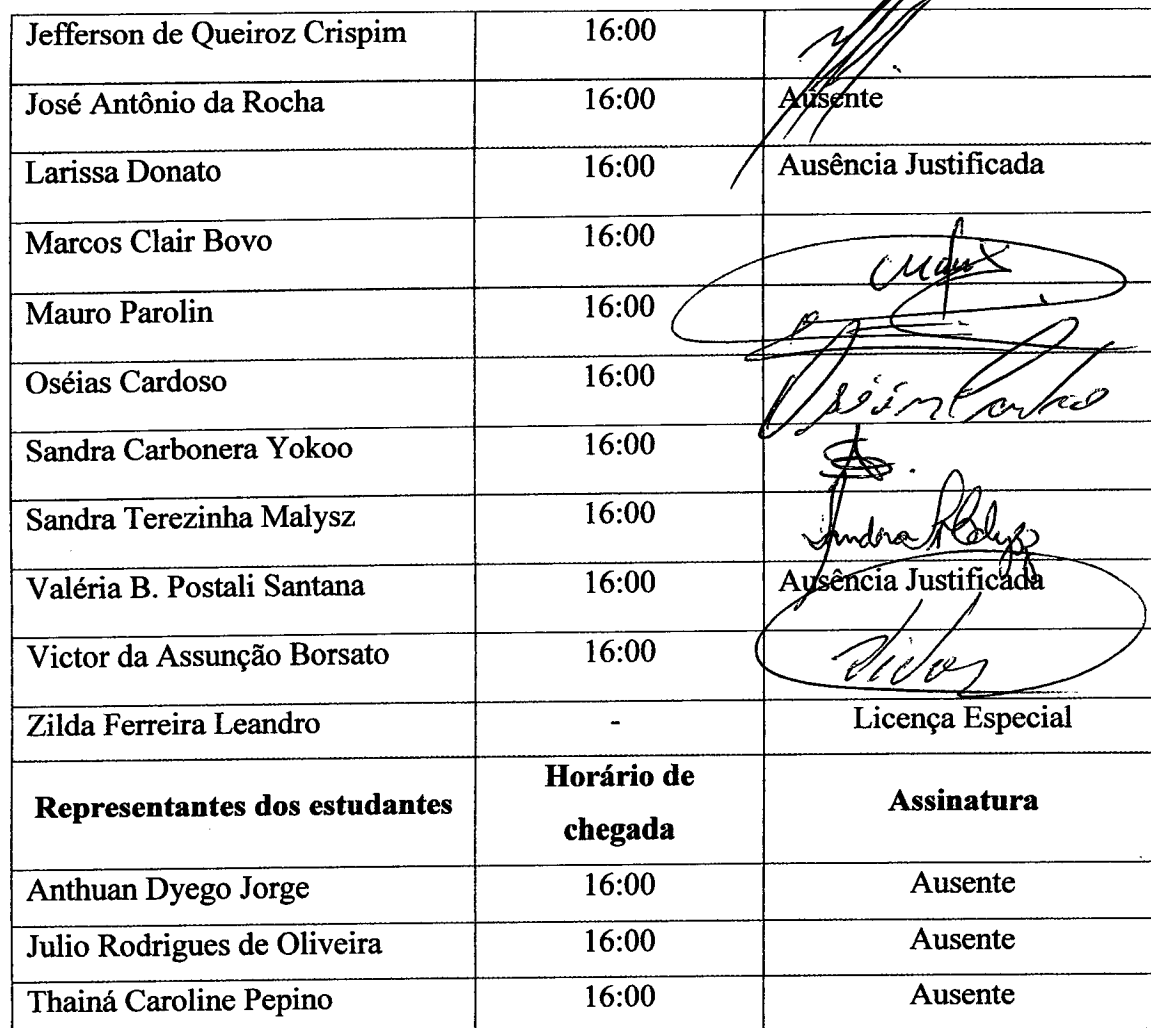 Jefferson de Queiroz Crispim 16:00
José Antônio da Rocha 16:00 Ausente
Larissa Donato 16:00 Ausência Justificada
Marcos Clair Bovo 16:00
Mauro Parolin 16:00
Oséias Cardoso 16:00 Oséias Cardoso
Sandra Carbonera Yokoo 16:00
Sandra Terezinha Malysz 16:00 Sandra T Malysz
Valéria B. Postali Santana 16:00 Ausência Justificada
Victor da Assunção Borsato 16:00
Zilda Ferreira Leandro - Licença Especial
Representantes dos estudantes Horário de chegada Assinatura
Anthuan Dyego Jorge 16:00 Ausente
Julio Rodrigues de Oliveira 16:00 Ausente
Thainá Caroline Pepino 16:00 Ausente